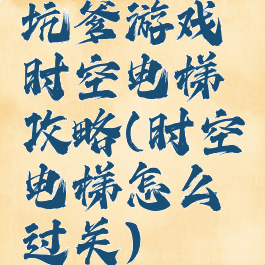 坑爹游戏
时空电梯
攻略(时空
电梯怎么
过关)